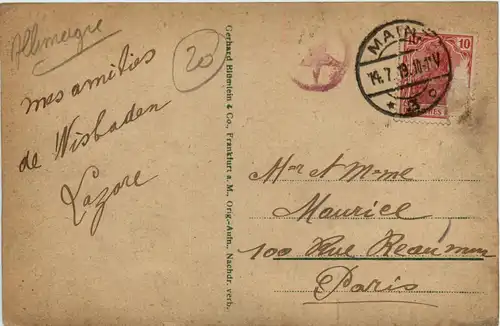 Allemagne
20
mes amitiés
de Wisbaden
Lazare
Gerhard Blümlein & Co., Frankfurt a. M., Orig.-Aufn., Nachdr. verb.
MAINZ
14.7.19.
10
Mr et Mme
Maurice
100 Rue Reaumur
Paris